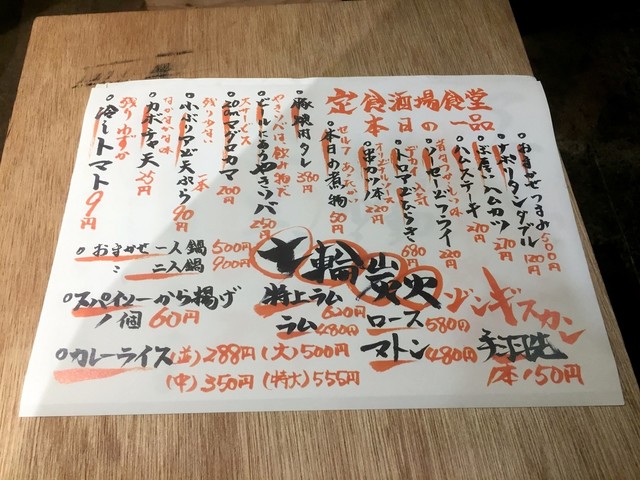 定食酒場食堂
本日の一品
おまかせつまみ 500円
ナポリタンダブル 120円
ぶ厚いハムカツ 270円
ハムステーキ 270円
ソーセージフライ 220円
串カツ一本 220円
セルフ
本日の煮物 50円
豚焼肉タレ 380円
ビールにあうやきソバ 250円
やきソバは、飲み物だ
スサービス
200円
残り少ない
小ぶりアジ天ぷら 一本 90円
カボチャ天 25円
残りわずか
冷しトマト 9円
おまかせ一人鍋 500円
〃 二人鍋 900円
スパイシーから揚げ
1個 60円
カレーライス (並)288円 (大)500円
(中)350円 (特大)555円
七輪炭火
ジンギスカン
特上ラム 620円
ラム 480円
ロース 580円
マトン 480円
手羽先
1本150円